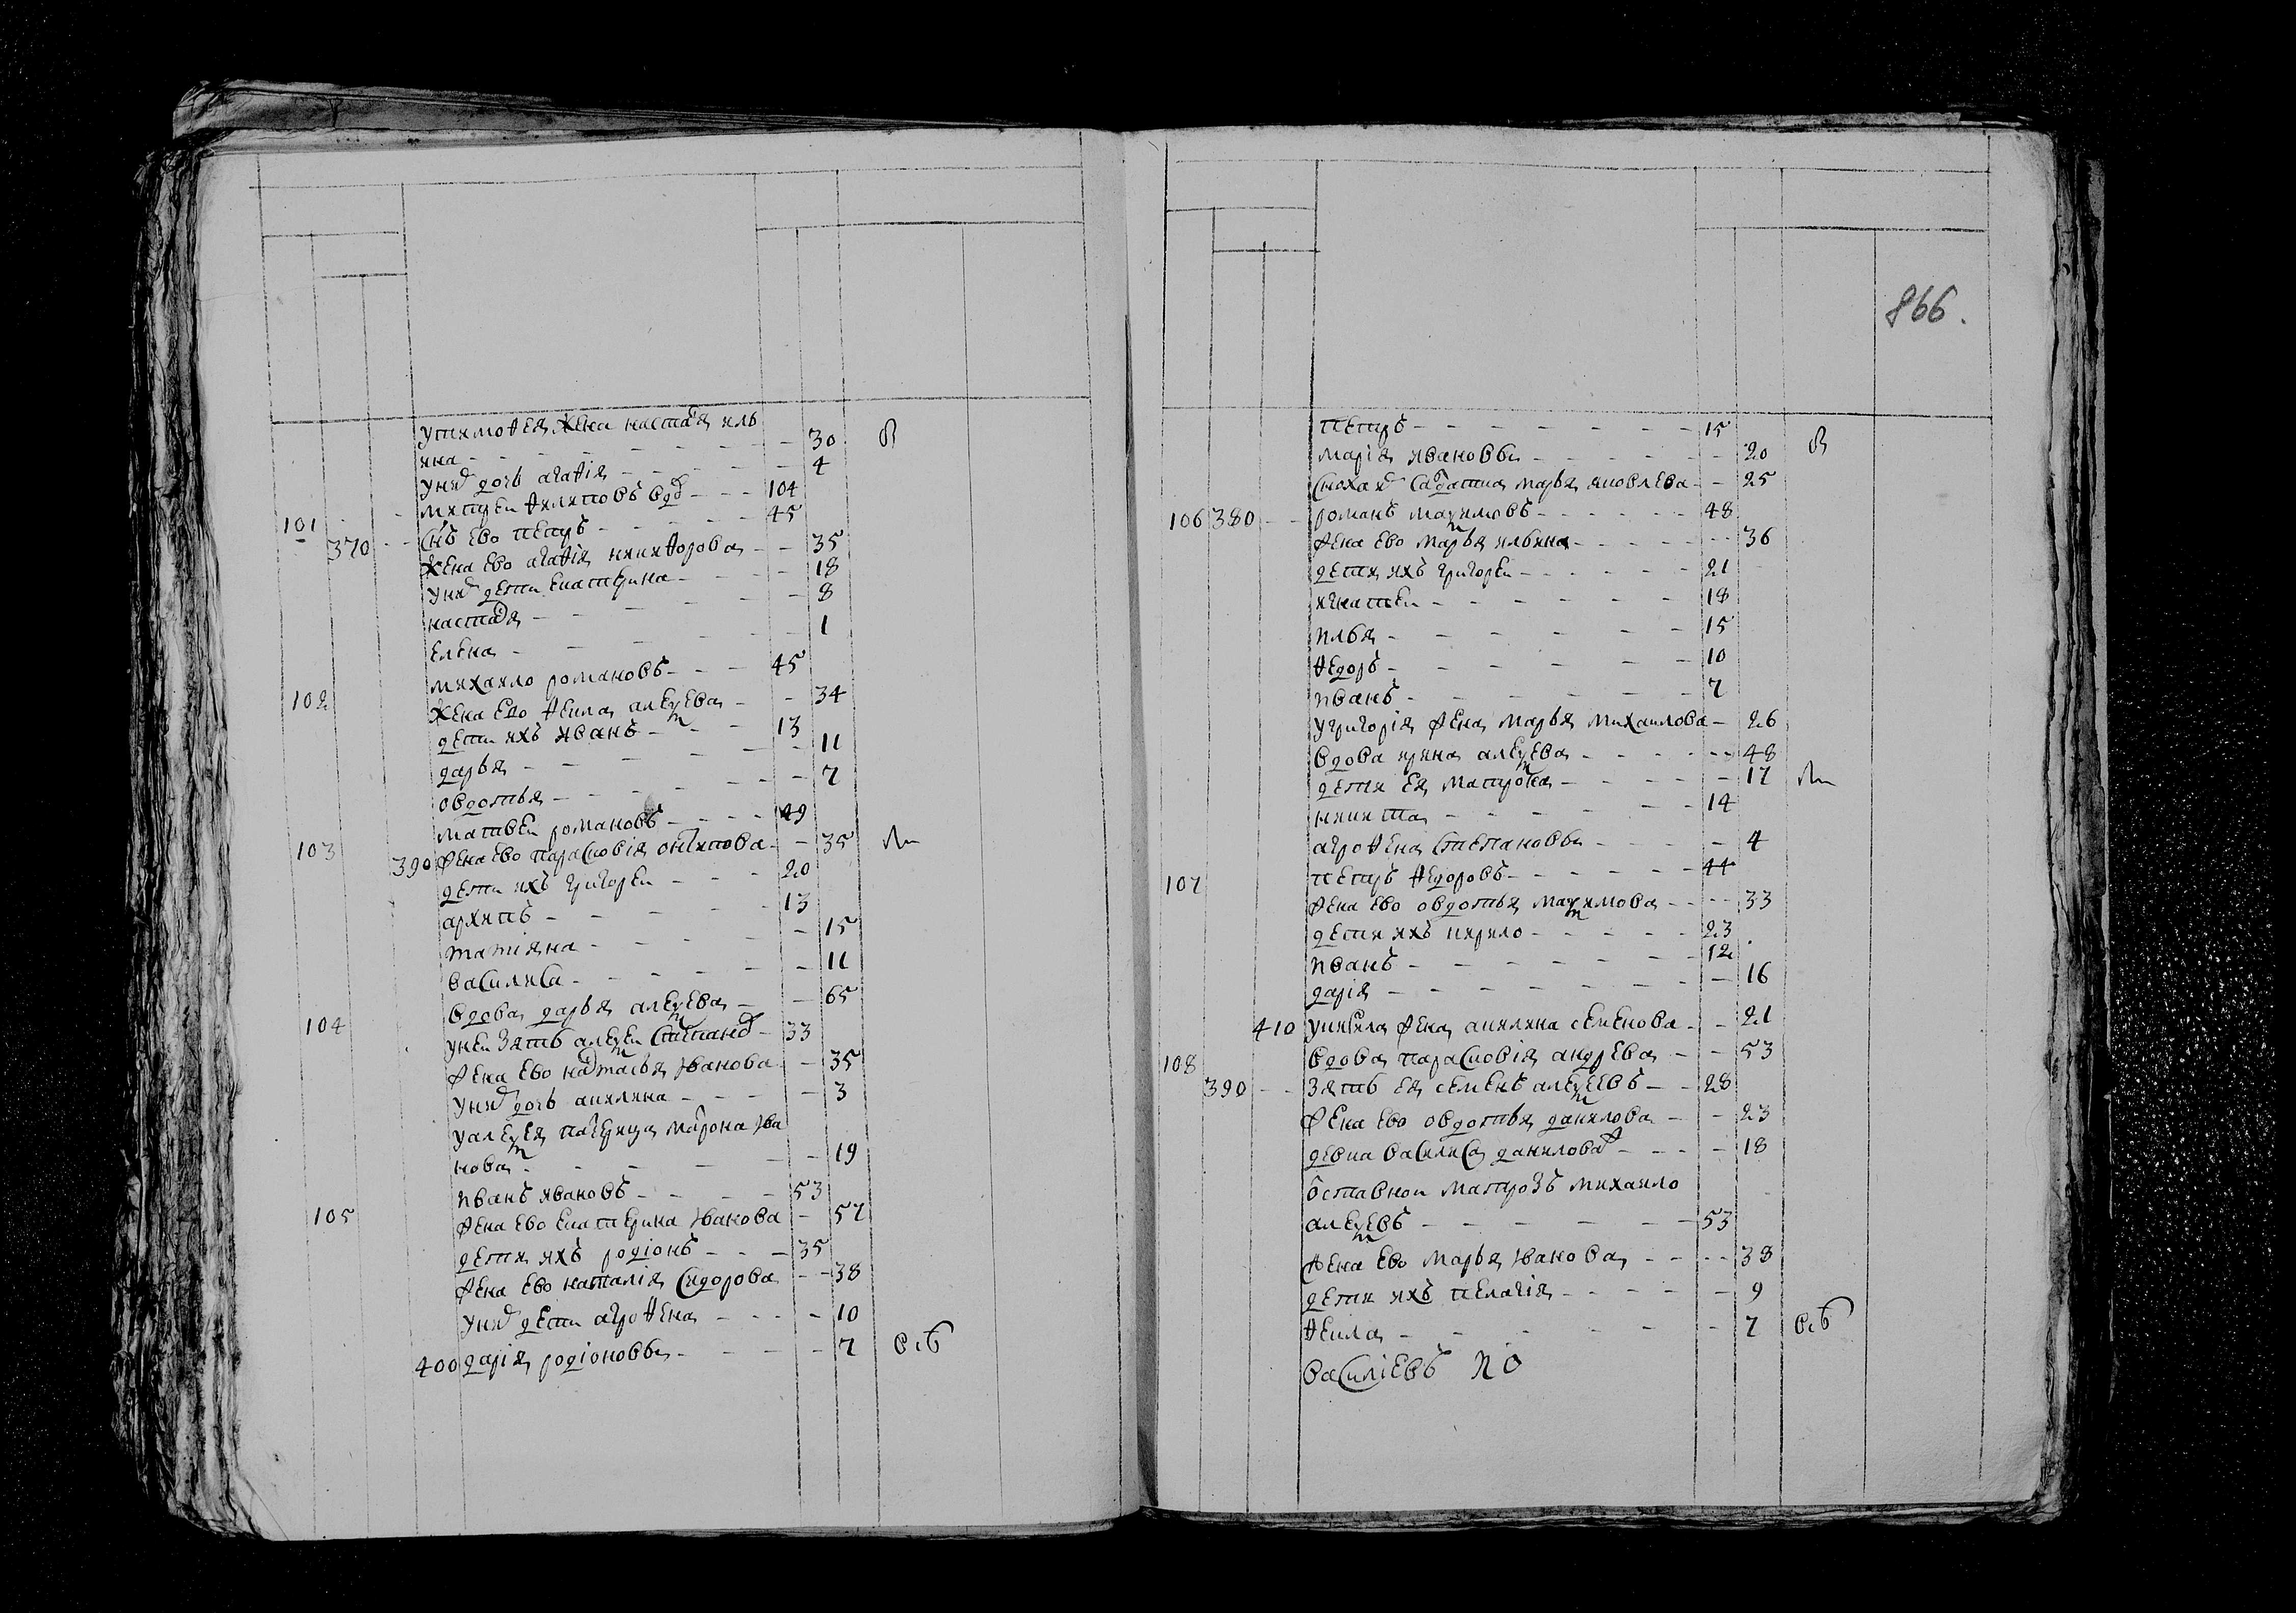 у тимофея жена настасья иль
ина - - - 30 в
у них дочь агафiя - - - 4
101 дмитрей филиповъ вдо - - - 104
370 снъ ево петръ - - - 45
жена ево агафiя никифорова - - 35
у них дети екатерина - - - 18
настася - - - 8
елена - - - 1
102 михаило романовъ - - - 45
жена ево фекла алеѯева - - 34
дети ихъ иванъ - - - 13
дарья - - - 11
овдотья - - - 7
103 матвеи романовъ - - - 49
390 жена ево парасковiя онтипова - - 35 ли
дети ихъ григореи - - - 20
архипъ - - - 13
татiяна - - - 15
василиса - - - 11
104 вдова дарья алеѯева - - 65
у неи зять алеѯеи степанов - 33
жена ево наталья иванова - - 35
у них дочь акилина - - - 3
у алеѯея падчерица матрона ива
нова - - - 19
105 иванъ ивановъ - - - 53
жена ево екатерина иванова - 57
дети ихъ родiонъ - - - 35
жена ево наталiя сидорова - - 38
у них дети агрофена - - - 10
400 дарiя родiоновы - - - 7 всѣ
866.
петръ - - - 15
марiя ивановы - - - 20 в
сноха их салдатка марья яковлева - - 25
106 380 - - романъ маѯимовъ - - - 48
жена ево марья ильина - - - 36
дети ихъ григореи - - - 21
игнатеи - - - 18
илья - - - 15
федоръ - - - 10
иванъ - - - 7
у григорiя жена марья михаилова - 26
вдова ирина алеѯева - - - 48
дети ея матрона - - - 17 ли
никита - - - 14
агрофена степановы - - - 4
107 петръ федоровъ - - - 44
жена ево овдотья маѯимова - - - 33
дети ихъ кирило - - - 23
иванъ - - - 12
дарiя - - - 16
410 у кирила жена акилина семенова - - 21
108 вдова парасковiя андрева - - 53
390 - - зять ея семенъ алеѯеевъ - - 28
жена ево овдотья данилова - - 23
девка василиса данилова ж - - - 18
отставнои матрозъ михаило
алеѯевъ - - - 53
жена ево марья иванова - - - 38
дети ихъ пелагiя - - - 9
фекла - - - 7 всѣ
василiевъ по